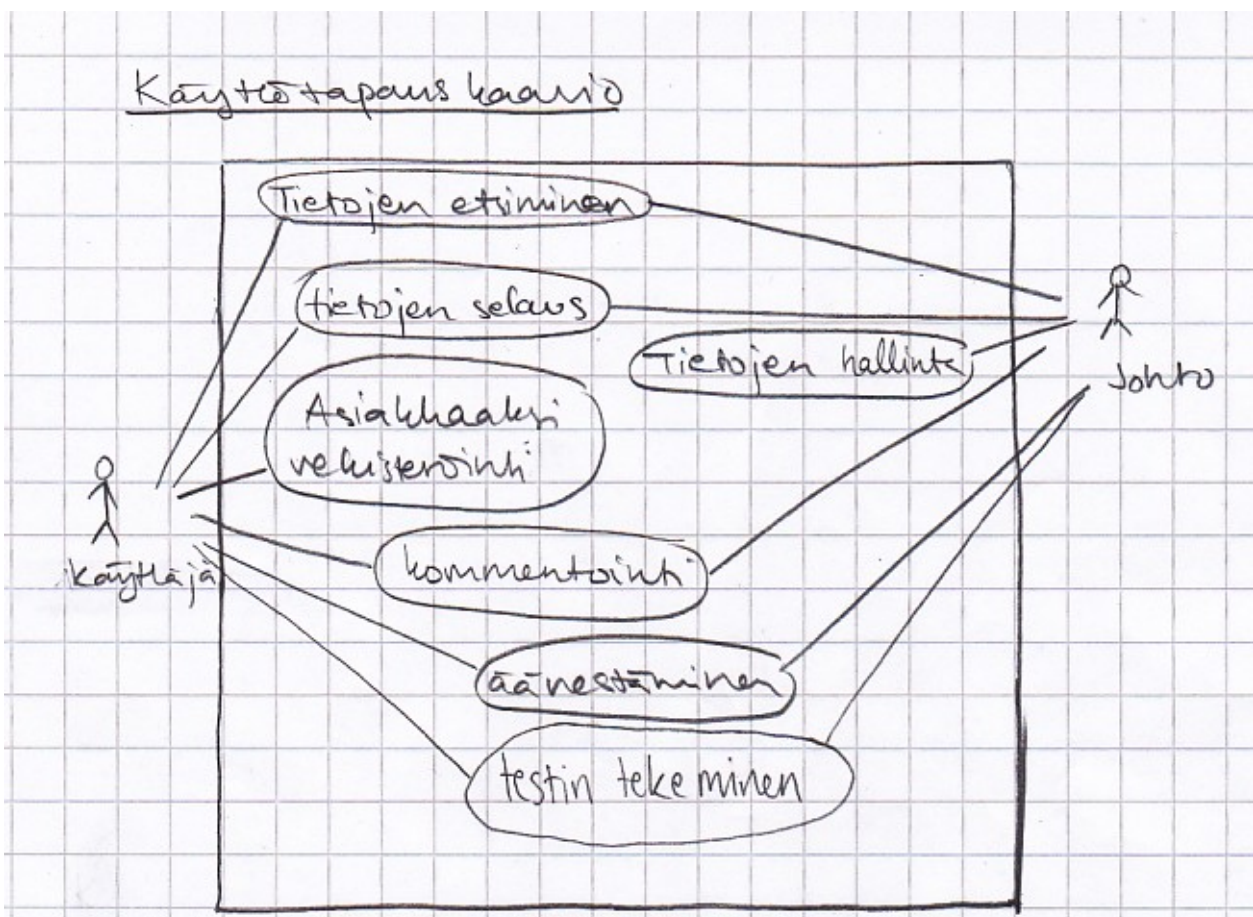 Käyttötapaus kaavio
Tietojen etsiminen
tietojen selaus
Tietojen hallinta
Asiakkaaksi
rekisteröinti
kommentointi
äänestäminen
testin tekeminen
Käyttäjä
Johto